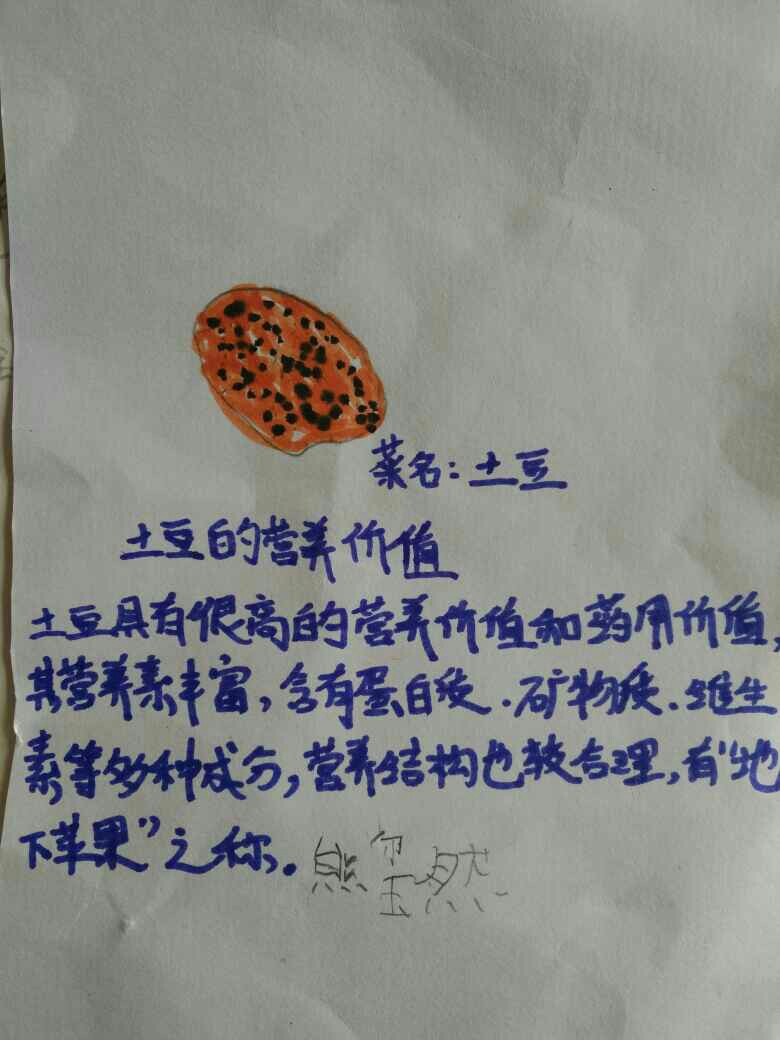 菜名：土豆
土豆的营养价值
土豆具有很高的营养价值和药用价值，
其营养素丰富，含有蛋白质、矿物质、维生
素等多种成分，营养结构也较合理，有“地
下苹果”之称。熊玺然